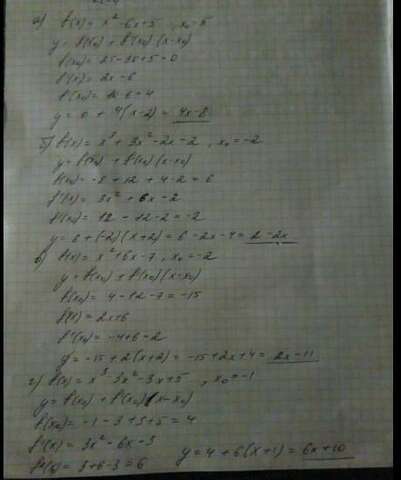 а) f(x) = x² - 6x + 5 , x₀ = 5
y = f(x₀) + f'(x₀)(x - x₀)
f(x₀) = 25 - 30 + 5 = 0
f'(x) = 2x - 6
f'(x₀) = - 6 = 4
y = 0 + 4(x - 2) = 4x - 8
б) f(x) = x³ + 3x² - 2x - 2 , x₀ = -2
y = f(x₀) + f'(x₀)(x - x₀)
f(x₀) = -8 + 12 + 4 - 2 = 6
f'(x) = 3x² + 6x - 2
f'(x₀) = 12 - 12 - 2 = -2
y = 6 + (-2)(x + 2) = 6 - 2x - 4 = 2 - 2x
в) f(x) = x² + 6x - 7 , x₀ = -2
y = f(x₀) + f'(x₀)(x - x₀)
f(x₀) = 4 - 12 - 7 = -15
f'(x) = 2x + 6
f'(x₀) = -4 + 6 = 2
y = -15 + 2(x + 2) = -15 + 2x + 4 = 2x - 11
г) f(x) = x³ - 3x² - 3x + 5 , x₀ = -1
y = f(x₀) + f'(x₀)(x - x₀)
f(x₀) = -1 - 3 + 3 + 5 = 4
f'(x) = 3x² - 6x - 3
f'(x₀) = 3 + 6 - 3 = 6 y = 4 + 6(x + 1) = 6x + 10